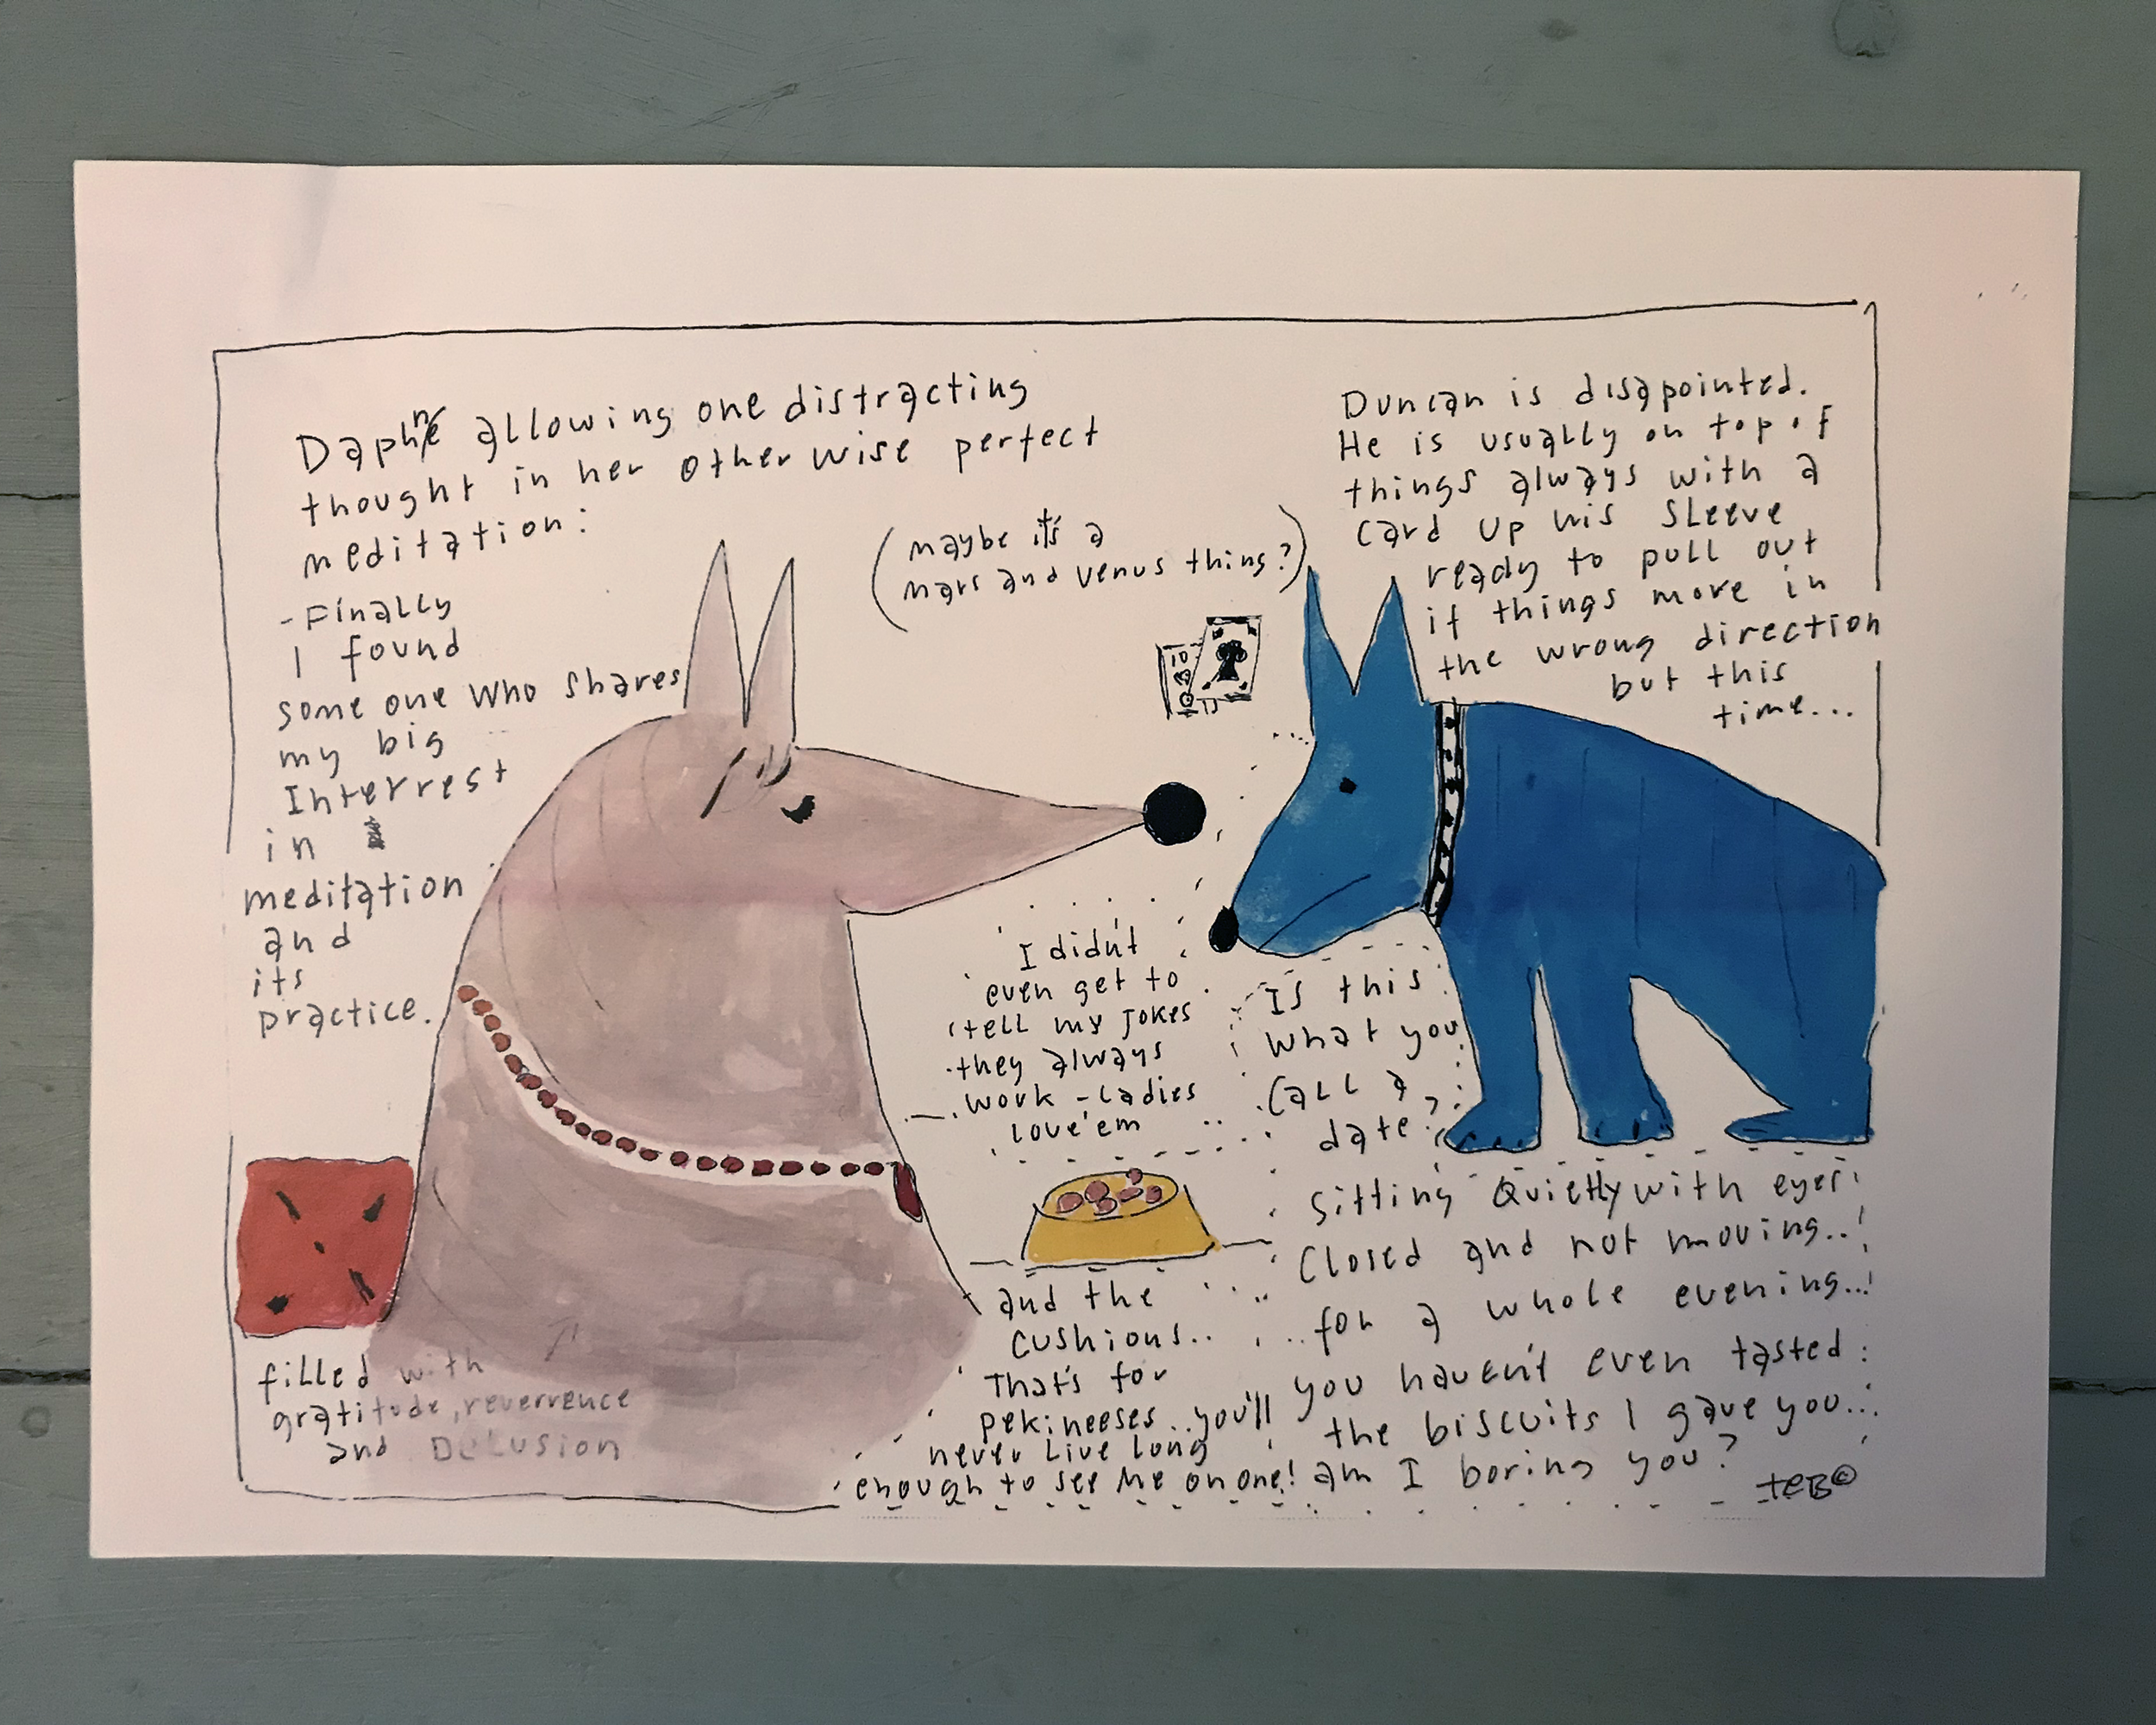 Daphne allowing one distracting
thought in her otherwise perfect
meditation:
- Finally
I found
some one who shares
my big
Interrest
in
meditation
and
its
practice.
filled with
gratitude, reverrence
and DeLusion
(maybe it's a
mars and venus thing?)
10
Duncan is disapointed.
He is usually on top of
things always with a
card up his sleeve
ready to pull out
if things more in
the wrong direction
but this
time...
I didn't
even get to
tell my jokes
they always
work - Ladies
love'em
Is this
what you
call a
date?
Sitting Quietly with eyes
closed and not moving..
..for a whole evening...
you haven't even tasted
the biscuits I gave you...
am I boring you?
and the
cushions..
That's for
pekineeses..you'll
never Live long
enough to see me on one!
TEB©